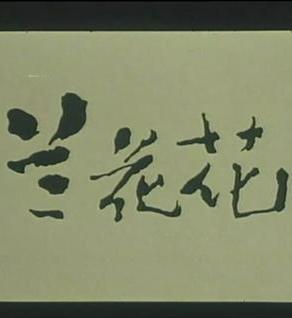 兰花花